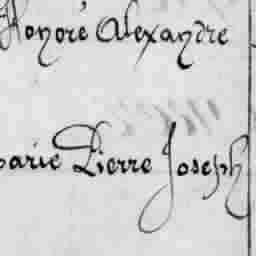 Honoré Alexandre
Marie Pierre Joseph